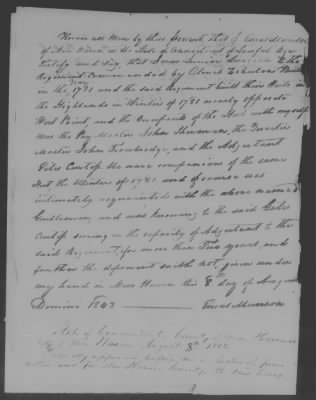 Known all Men by these presents that I Eneas Munson
of New Haven in the State of Connecticut of Lawful Age
Testify and Say, that I was Junior Surgeon to the
Regiment Commanded by Colonel Zebulon Butler
in the year 1781 and the said Regiment built their Huts in
the Highlands in Winter of 1781 nearly opposite
West Point, and the Occupants of the Hut with myself
was the Pay Master John Sherman, the Quarter
Master John Trowbridge, and the Adjutant
Giles Curtiss. We were companions of the same
Hut the Winter of 1781 and of course was
intimately acquainted with the above named
Gentlemen, and was knowing to the said Giles
Curtiss serving in the capacity of Adjutant to the
said Regiment for more than Two years, and
further the deponent saith not, given under
my hand in New Haven this 8th day of August
Domini 1843
Eneas Munson
State of Connecticut, County of New Haven
New Haven August 8th 1843
Personally appeared before me a Justice of peace
within and for New Haven County the said Eneas